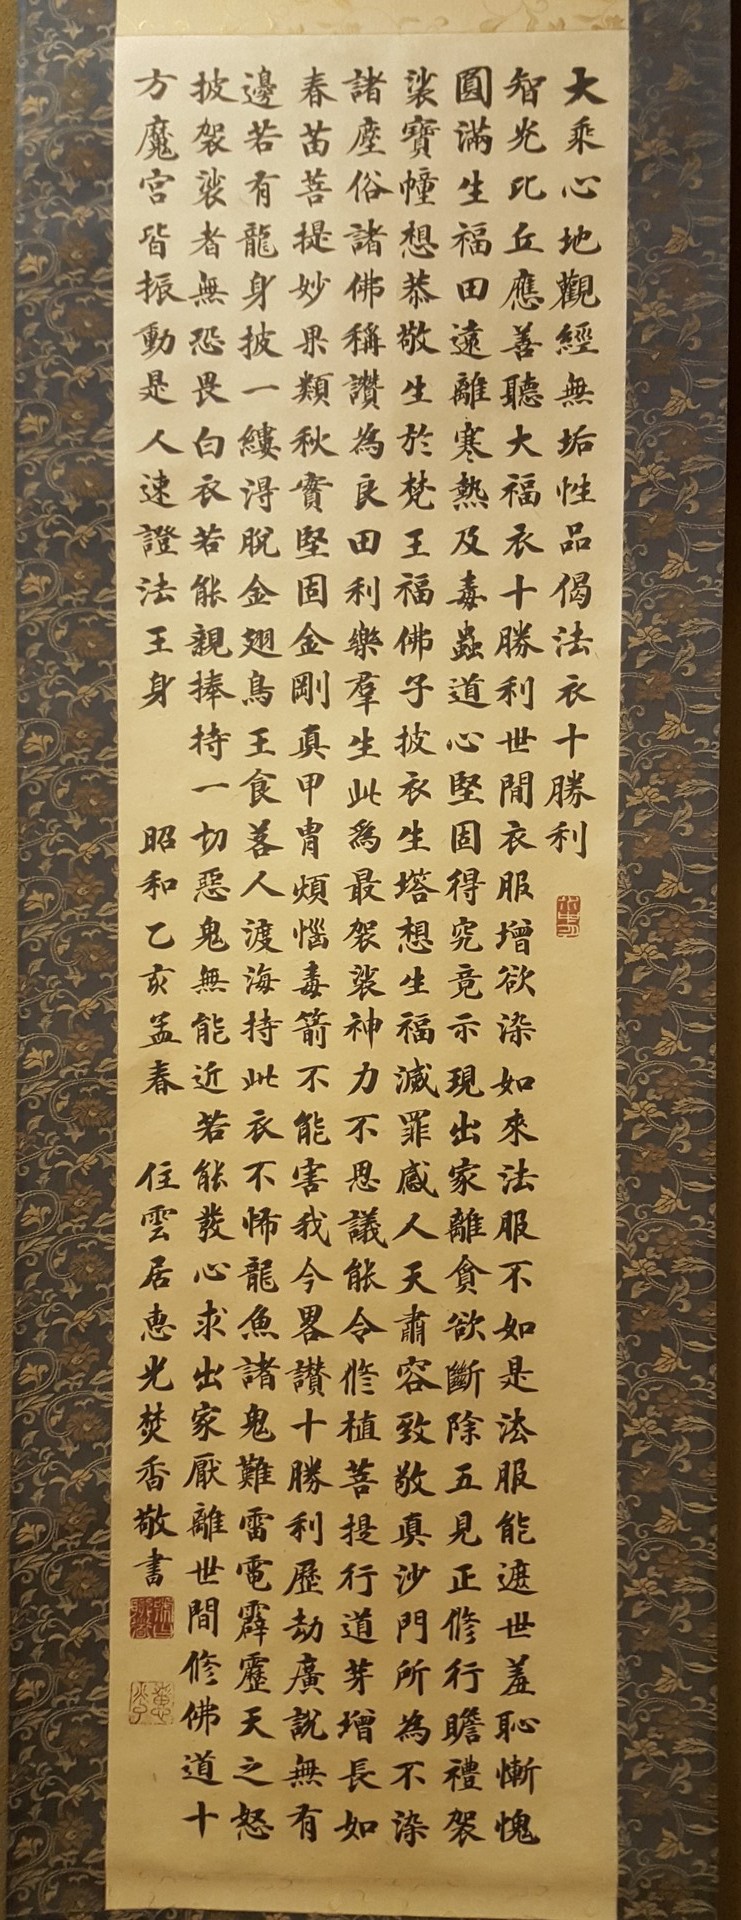 大乘心地觀經無垢性品偈法衣十勝利
智光比丘應善聽大福衣十勝利世間衣服增欲染如來法服不如是法服能遮世羞恥慚愧
圓滿生福田遠離寒熱及毒蟲道心堅固得究竟示現出家離貪欲斷除五見正修行瞻禮袈
裟寶幢想恭敬生於梵王福佛子披衣生塔想生福滅罪感人天肅容致敬真沙門所為不染
諸塵俗諸佛稱讚為良田利樂羣生此為最袈裟神力不思議能令修植菩提行道芽增長如
春苗菩提妙果類秋實堅固金剛真甲冑煩惱毒箭不能害我今畧讚十勝利歷劫廣說無有
邊若有龍身披一縷得脫金翅鳥王食善人渡海持此衣不怖龍魚諸鬼難雷電霹靂天之怒
披袈裟者無恐畏白衣若能親捧持一切惡鬼無能近若能發心求出家厭離世間修佛道十
方魔宮皆振動是人速證法王身 昭和乙亥孟春 住雲居惠光焚香敬書